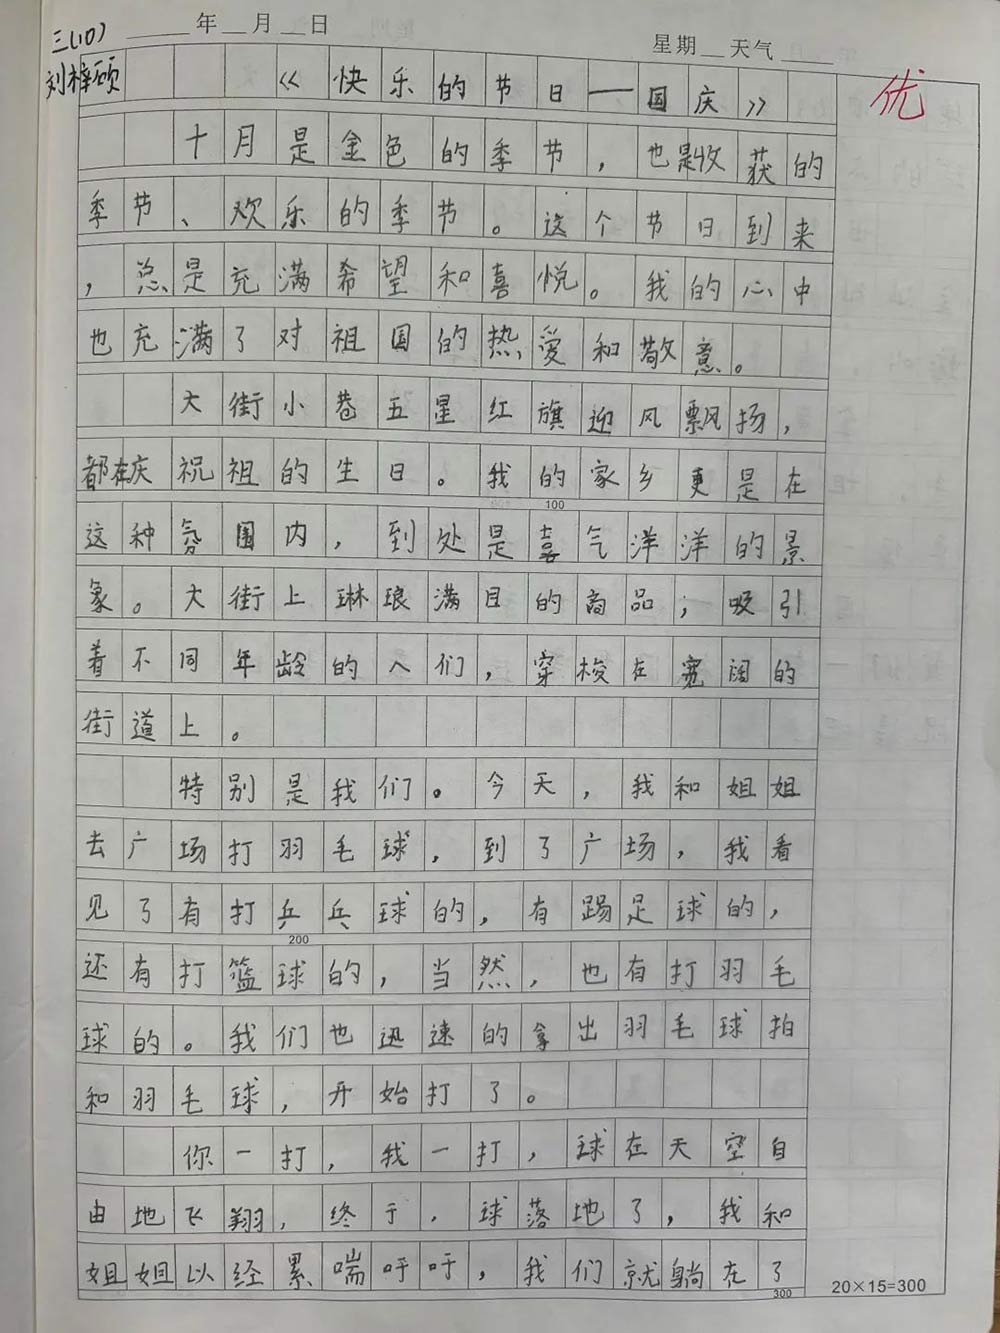 三(10) 年 月 日
星期 天气
刘梓硕 《快乐的节日——国庆》 优
十月是金色的季节，也是收获的
季节、欢乐的季节。这个节日到来
，总是充满希望和喜悦。我的心中
也充满了对祖国的热爱和敬意。
大街小巷五星红旗迎风飘扬，
都在庆祝祖的生日。我的家乡更是在
100
这种氛围内，到处是喜气洋洋的景
象。大街上琳琅满目的商品；吸引
着不同年龄的人们，穿梭在宽阔的
街道上。
特别是我们。今天，我和姐姐
去广场打羽毛球，到了广场，我看
见了有打乒乓球的，有踢足球的，
200
还有打篮球的，当然，也有打羽毛
球的。我们也迅速的拿出羽毛球拍
和羽毛球，开始打了。
你一打，我一打，球在天空自
由地飞翔，终于，球落地了，我和
姐姐以经累喘吁吁，我们就躺在了
300
20×15=300